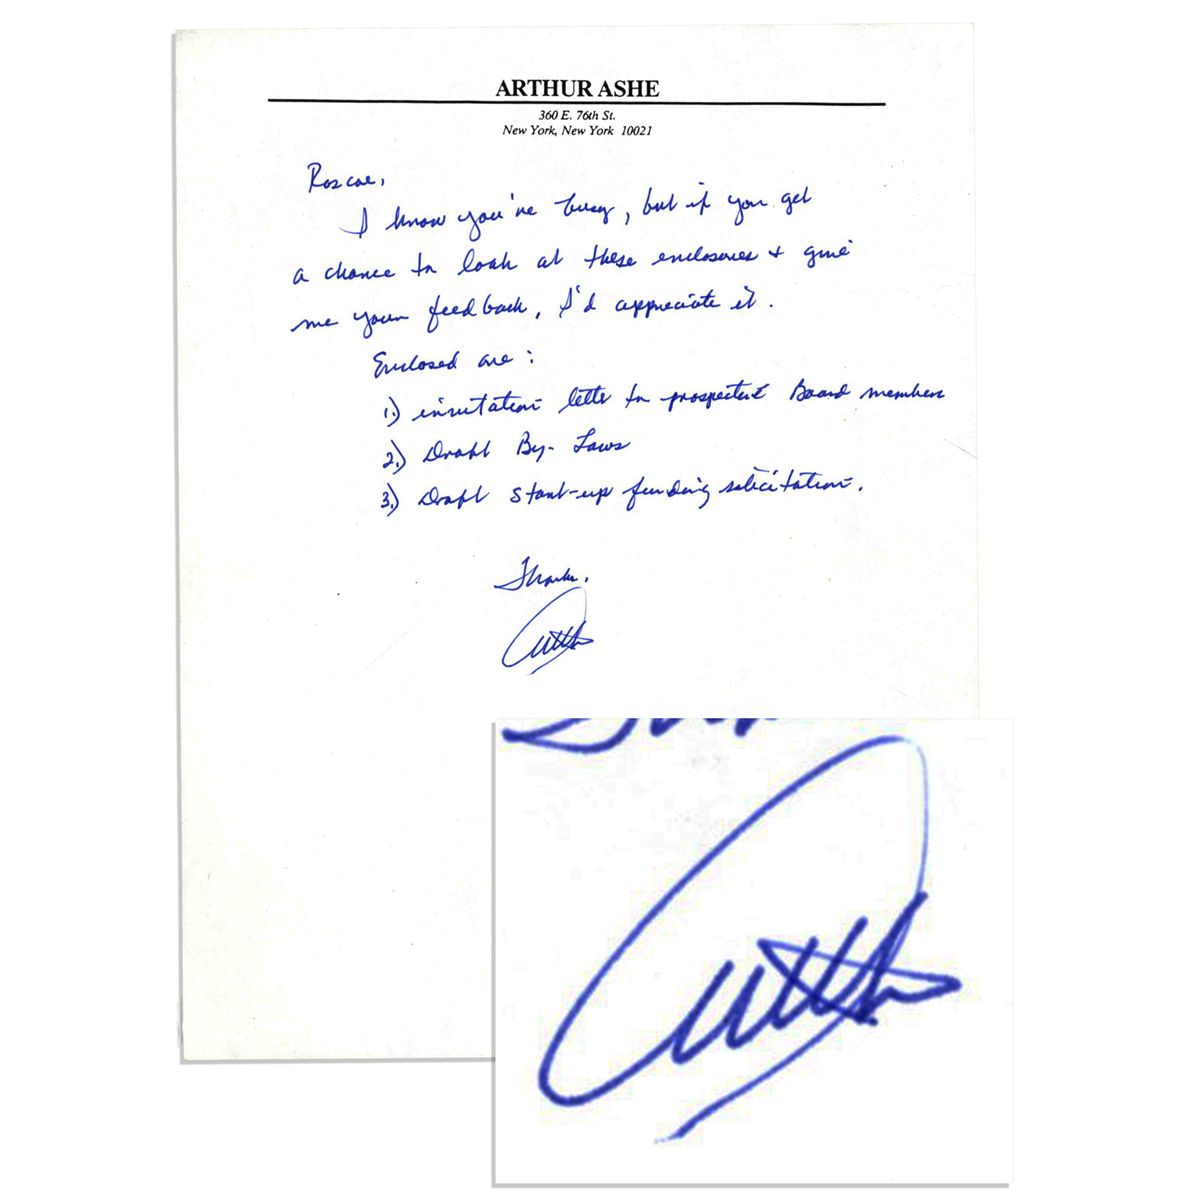 ARTHUR ASHE
360 E. 76th St.
New York, New York 10021
Roscoe,
I know you've busy, but if you get
a chance to look at these enclosures + give
me your feedback, I'd appreciate it.
Enclosed are:
1.) invitation letter to prospective Board members
2.) Draft By-Laws
3.) Draft start-up funding solicitation.
Thanks.
Arthur
Arthur